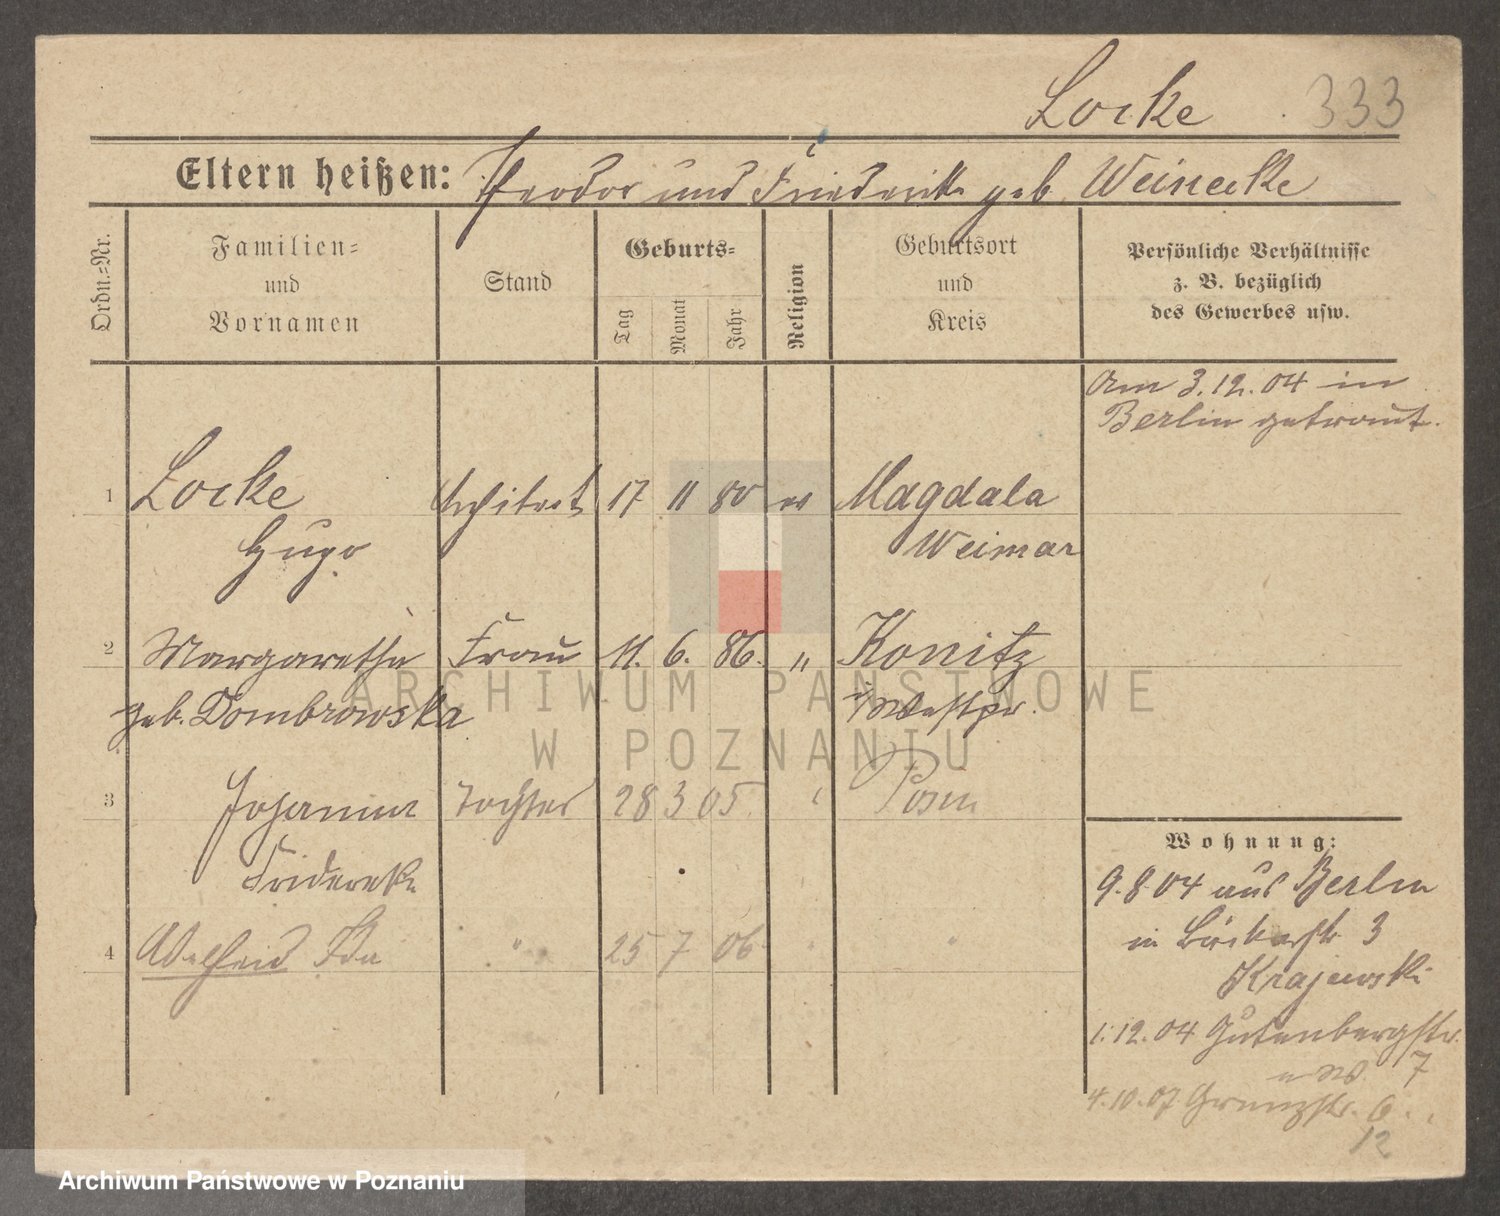 Locke 333
Eltern heißen: Theodor und Friederike geb. Weinecke
Ordn.=Nr.
Familien=
und
Vornamen
Stand
Geburts=
Tag
Monat
Jahr
Religion
Geburtsort
und
Kreis
Persönliche Verhältnisse
z. B. bezüglich
des Gewerbes usw.
Am 3.12.04 in
Berlin getraut.
1 Locke Architect 17 11 80 ev Magdala
Hugo Weimar
2 Margarethe Frau 11. 6. 86. " Konitz
geb. Dombrowska i/Westpr.
3 Johanna Tochter 28 3 05 Posen
Friderike
4 Adelheid Ida " 25 7 06
Wohnung:
9.8.04 aus Berlin
in Bäckerstr 3
Krajewski
1.12.04 Gutenbergstr.
7
4.10.07 Grenzstr. 6.
12
ARCHIWUM PAŃSTWOWE
W POZNANIU
Archiwum Państwowe w Poznaniu